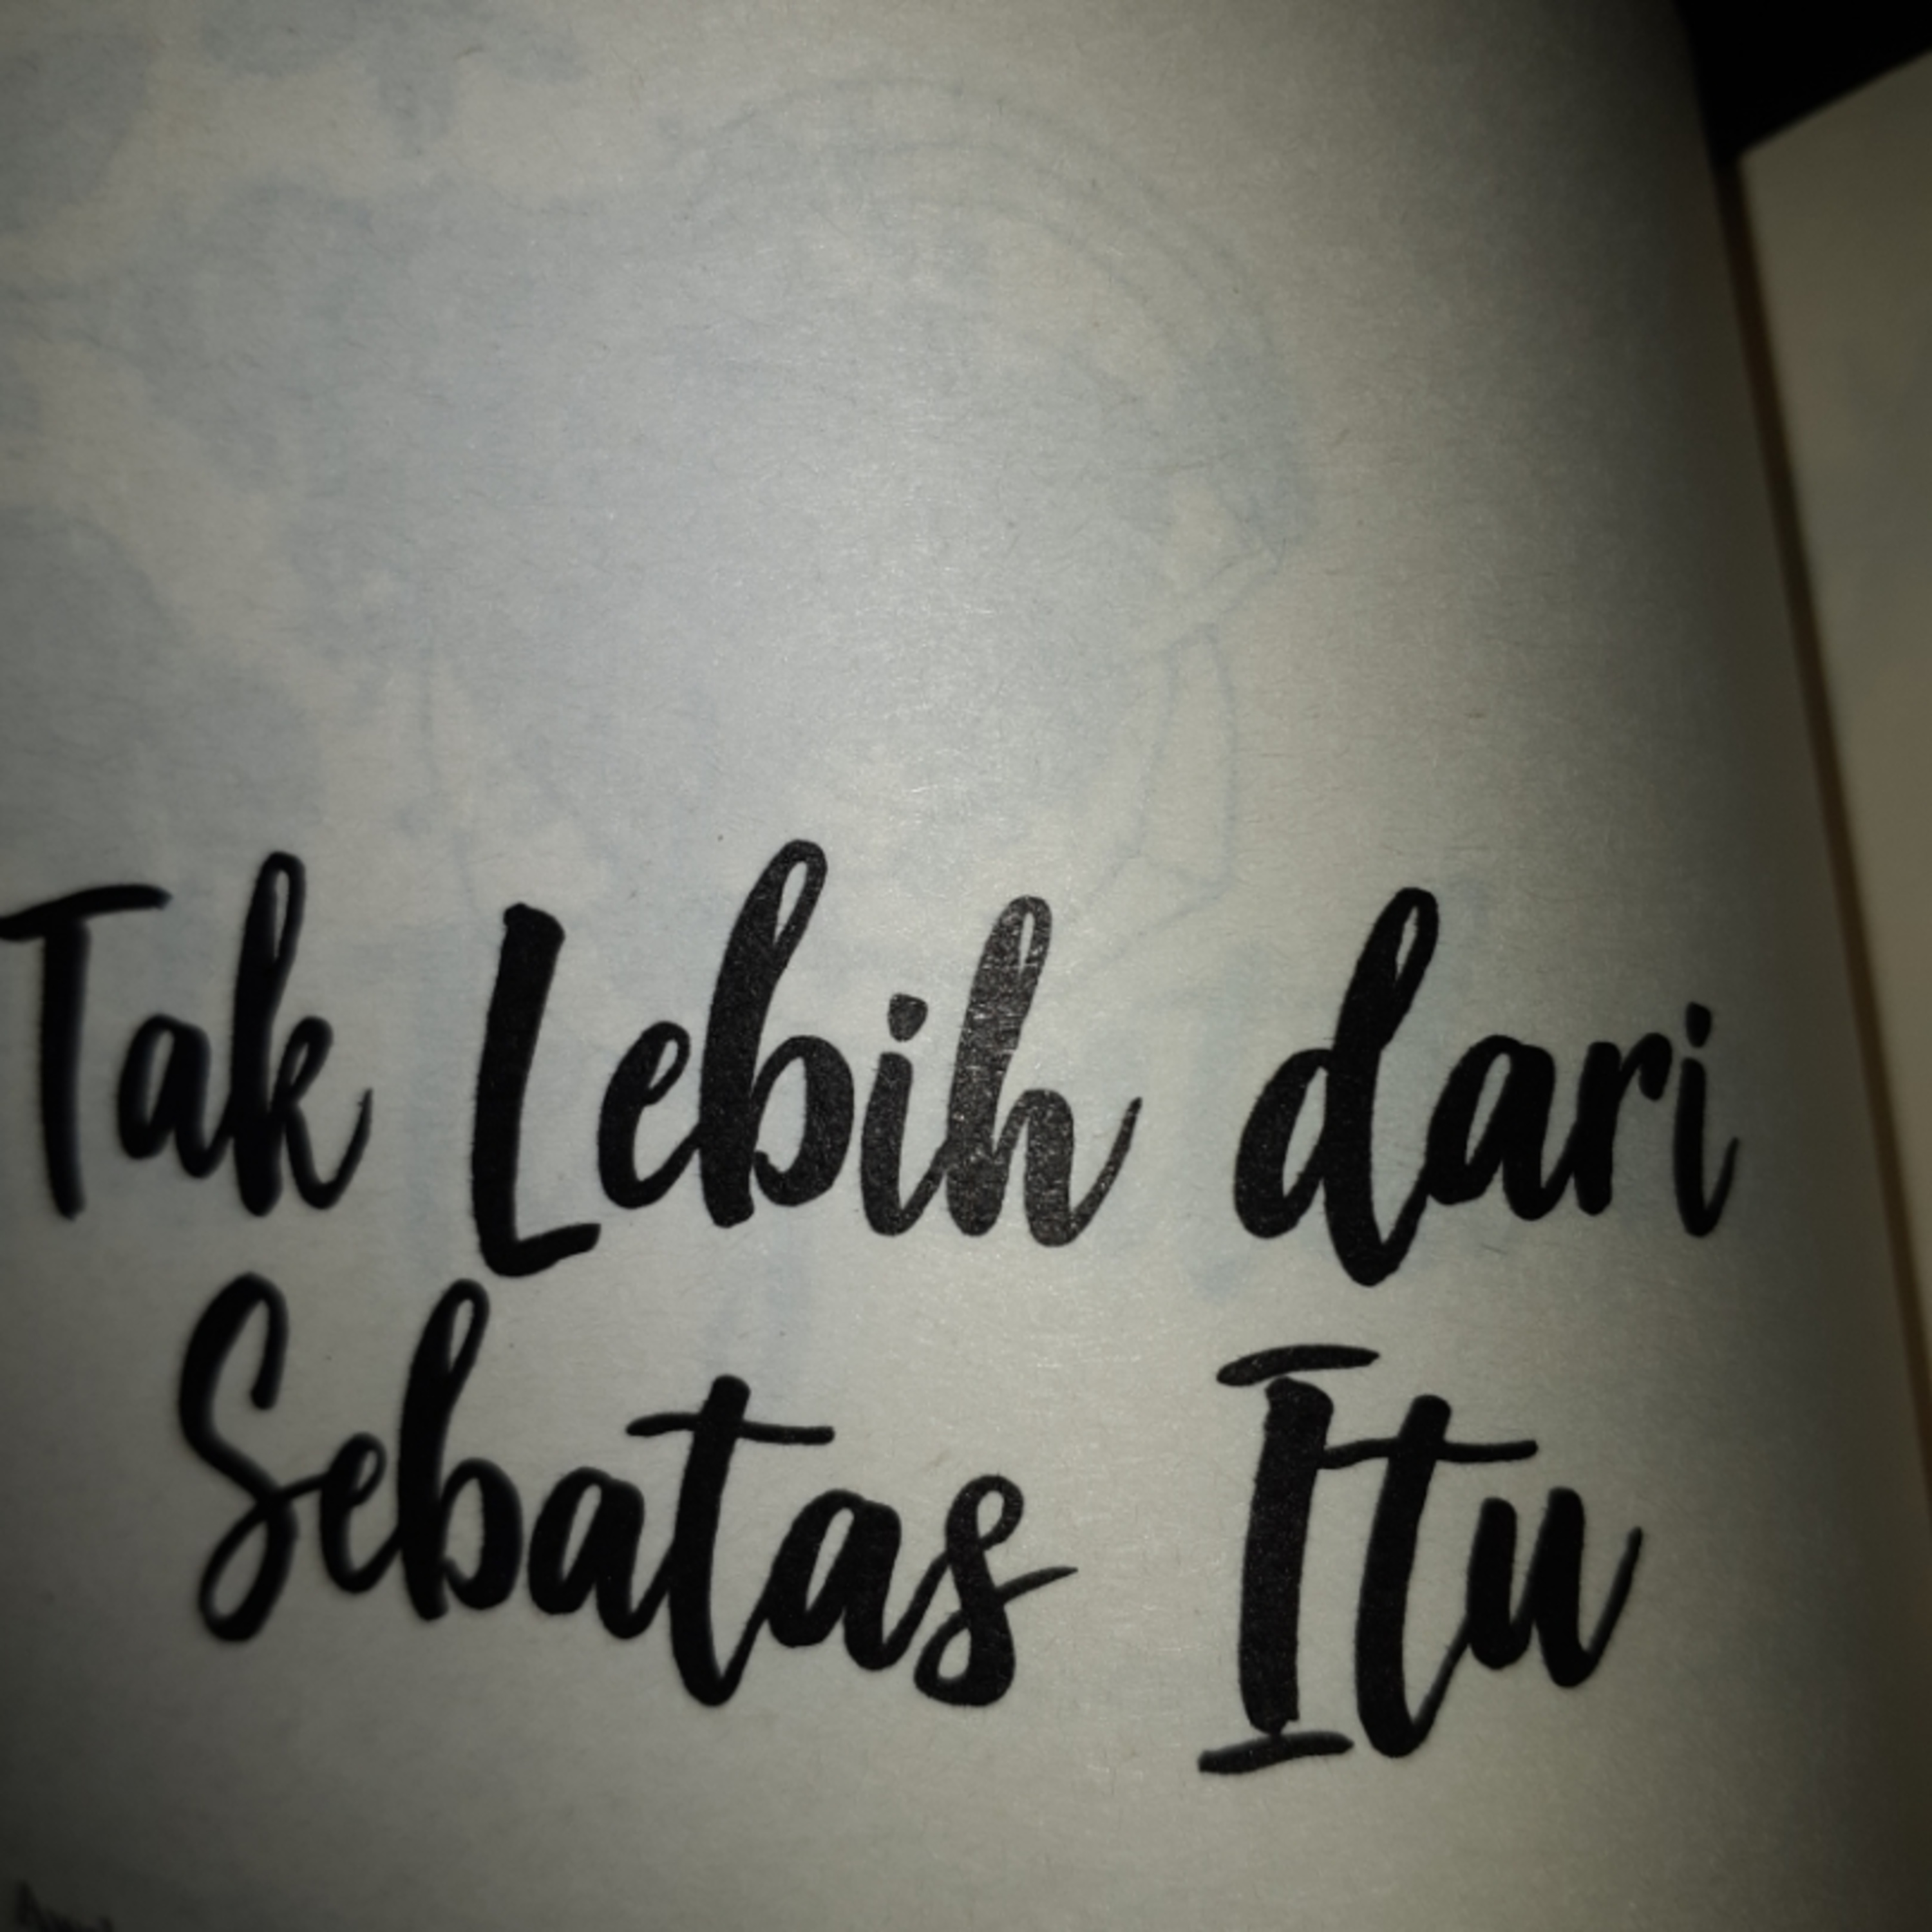 Tak Lebih dari
Sebatas Itu